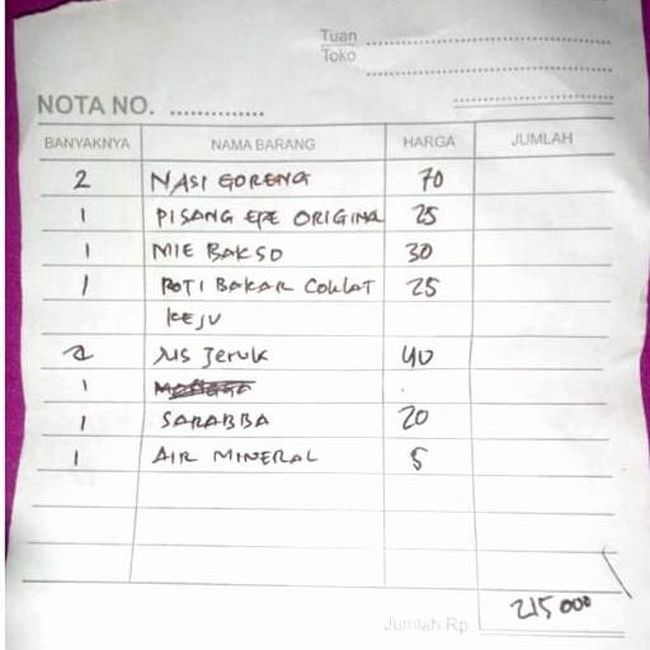 Tuan
Toko
NOTA NO.
BANYAKNYA NAMA BARANG HARGA JUMLAH
2 NASI GORENG 70
1 PISANG EPE ORIGINAL 25
1 MIE BAKSO 30
1 ROTI BAKAR COKLAT 25
KEJU
2 JUS Jeruk 40
1
1 SARABBA 20
1 AIR MINERAL 5
Jumlah Rp 215 000